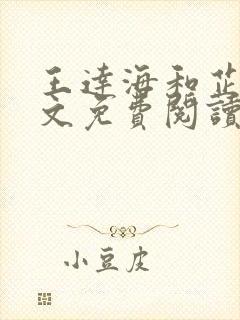 王達海和芷
文免費閱讀
小豆皮